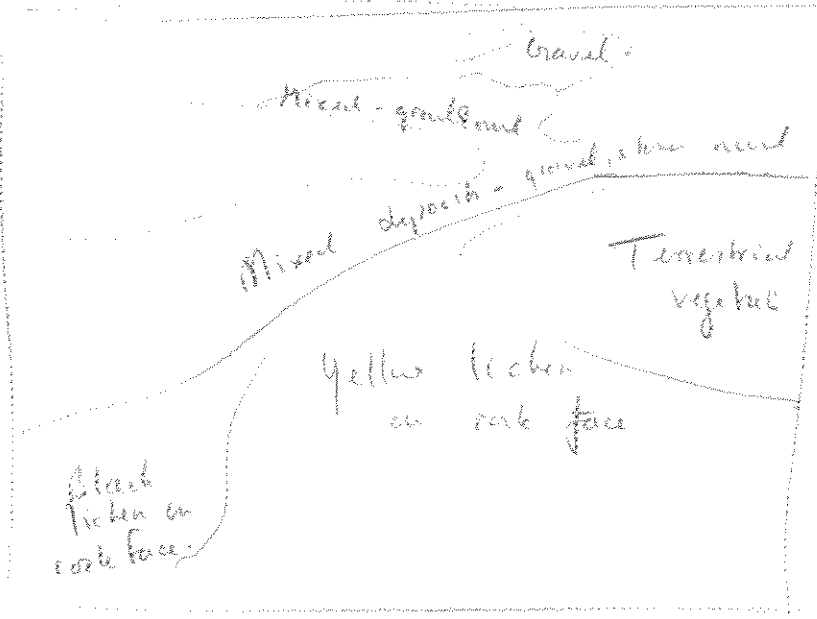 Gravel.
Mixed - gravel & mud
Mixed deposit - gravel, stone mud
Terrestrial
Yellow lichen
on rock face
Black
lichen on
rock face.